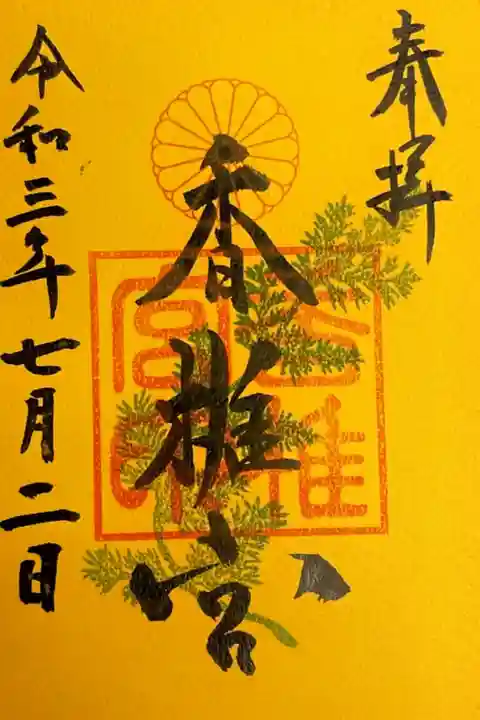 奉拝
香椎宮
令和三年七月二日